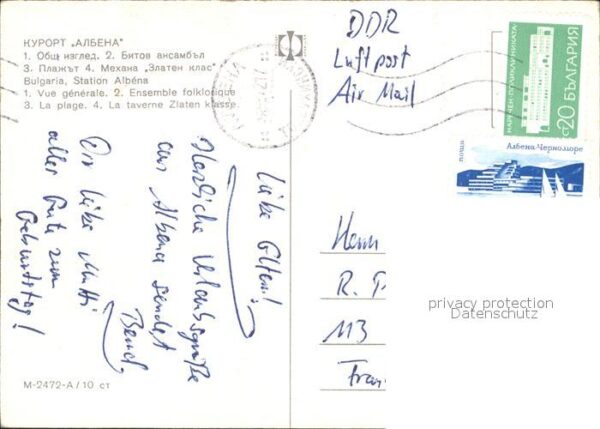 КУРОРТ „АЛБЕНА"
1. Общ изглед. 2. Битов ансамбъл
3. Плажът 4. Механа „Златен клас"
Bulgaria, Station Albéna
1. Vue générale. 2. Ensemble folklorique
3. La plage. 4. La taverne Zlaten klasse
Liebe Eltern!
Herzliche Urlaubsgrüße
aus Albena sendet
Bernd.
Dir liebe Mutti
alles Gute zum
Geburtstag!
М-2472-А/10 ст
DDR
Luftpost
Air Mail
НАРЕЧЕН·ПОЛИКЛИНИКАТА
ст20 БЪЛГАРИЯ
Албена-Черноморие
поща
Herrn
R. P
113
Fran
privacy protection
Datenschutz